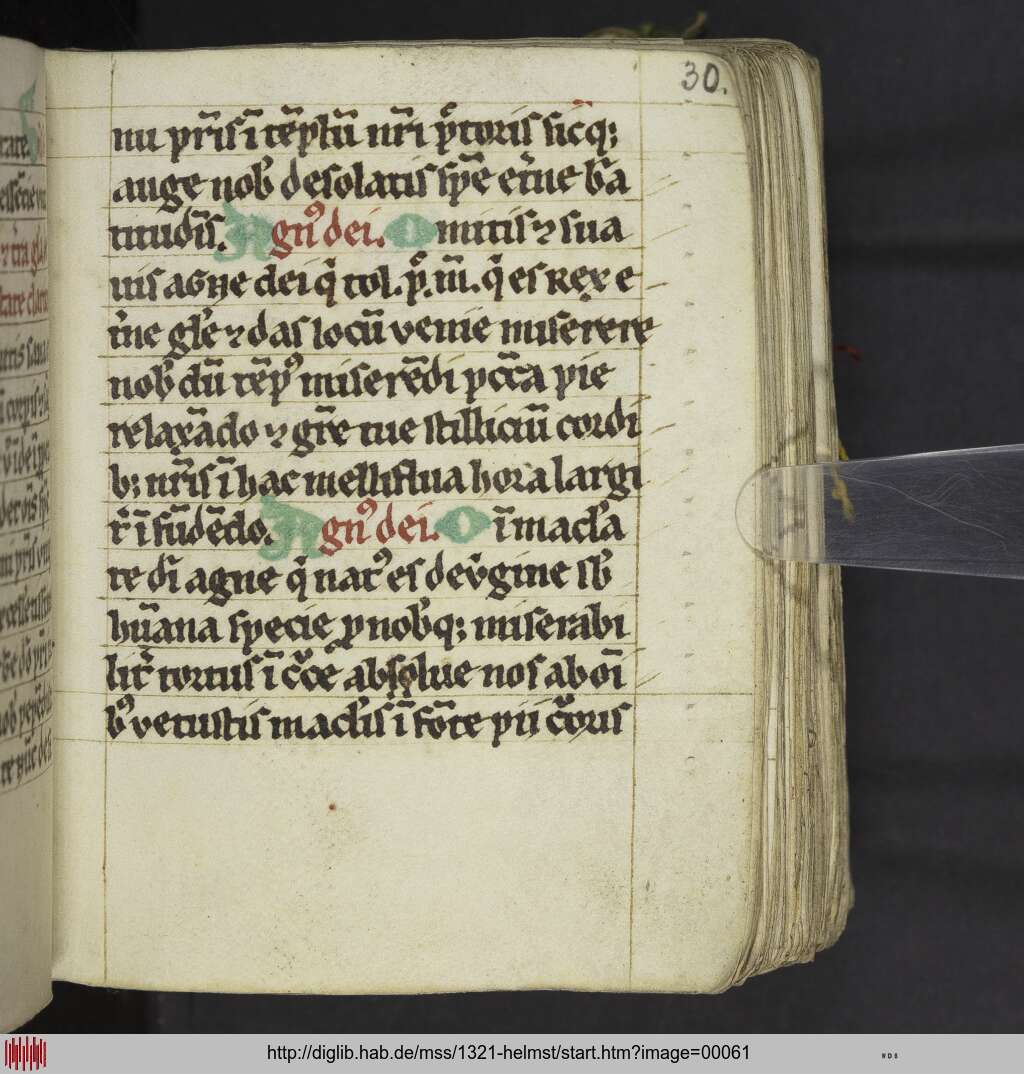 30.
nu pr̄is ī tēplū nr̄i p̄toris sicq;
auge nob̾ desolatis spē et̾ne b̄a
titudīs. Agn⁹ dei. O mitis ⁊ sua
uis agne dei q̇ tol. p̄. m̄. q̇ es Rex e
t̾ne gl̾e ⁊ das locū venie miserere
nob̾ dū tēp⁹ miserēdi pcc̄a pie
relaxādo ⁊ gr̄e tue stilliciū cordi
b; nr̄is ī hac mellflua hora largi
t̾ ī fūdēdo. Agn⁹ dei. O īmacl̾a
te dī agne q̇ nat⁹ es de v̾gine sb̾
hūana specie p nob̾q; miserabi
lit̾ tortus ī c̾ce absolue nos ab oī
b⁹ vetustis macl̾is ī fōte pii c̾oris
http://diglib.hab.de/mss/1321-helmst/start.htm?image=00061